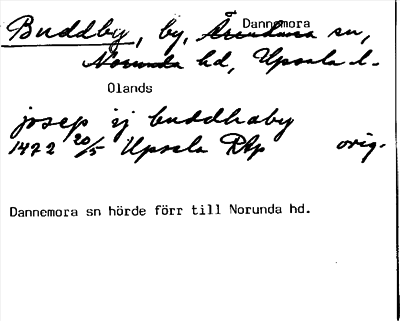 Dannemora
Buddby, by, Ärentuna sn,
Norunda hd, Upsala l.
Olands
josep ij buddhaby
1472 20/5 Upsala RAp orig.
Dannemora sn hörde förr till Norunda hd.